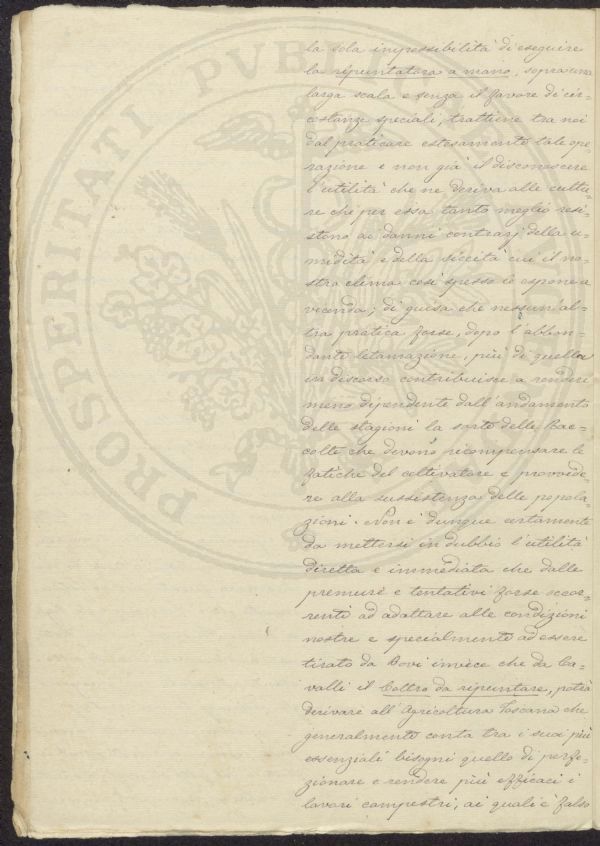 la sola impossibilità di eseguire
la ripuntatura a mano, sopra una
larga scala e senza il favore di cir=
costanze speciali, trattiene tra noi
dal praticare estesamente tale ope=
razione e non già il disconoscere
l'utilità che ne deriva alle cultu=
re che per essa tanto meglio resi=
stono ai danni contrarj della u=
midità e della siccità cui il no=
stro clima così spesso le espone a
vicenda; di guisa che nessun'al=
tra pratica forse, dopo l'abbon=
dante letamazione, più di quella
in discorso contribuisce a rendere
meno dipendente dall'andamento
delle stagioni la sorte delle Rac=
colte che devono ricompensare le
fatiche del coltivatore e provvede=
re alla sussistenza delle popola=
zioni. Non è dunque certamente
da mettersi in dubbio l'utilità
diretta e immediata che dalle
premure e tentativi forse occor=
renti ad adattare alle condizioni
nostre e specialmente ad essere
tirato da Bovi invece che da Ca=
valli il Coltro da ripuntare, potrà
derivare all'Agricoltura Toscana che
generalmente conta tra i suoi più
essenziali bisogni quello di perfe=
zionare e rendere più efficaci i
lavori campestri, ai quali è falso
PROSPERITATI PVBLICAE